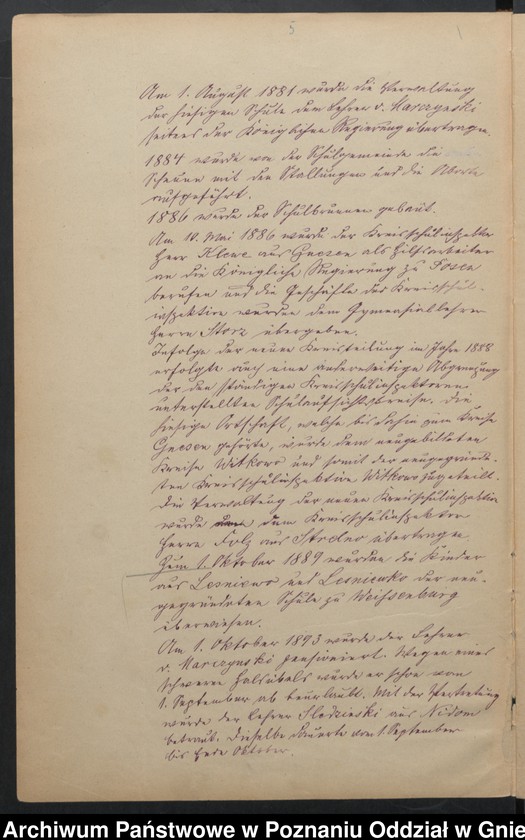 5
Am 1. August 1881 wurde die Verwaltung
der hiesigen Schule dem Lehrer v. Marczynski
seitens der Königlichen Regierung übertragen.
1884 wurde von der Schulgemeinde die
Scheune mit den Stallungen und die Aborte
aufgeführt.
1886 wurde der Schulbrunnen gebaut.
Am 10. Mai 1886 wurde der Kreisschulinspektor
Herr Klewe aus Gnesen als Hilfsarbeiter
an die Königliche Regierung zu Posen
berufen und die Geschäfte der Kreisschul-
inspektion wurden dem Gymnasiallehrer
Herrn Storz übergeben.
Infolge der neuen Kreisteilung im Jahre 1888
erfolgte auch eine anderweitige Abgrenzung
der den ständigen Kreisschulinspektoren
unterstellten Schulaufsichtskreise. Die
hiesige Ortschaft, welche bis dahin zum Kreise
Gnesen gehörte, wurde dem neugebildeten
Kreise Witkowo und somit der neugegründe-
ten Kreisschulinspektion Witkowo zugeteilt.
Die Verwaltung der neuen Kreisschulinspektion
wurde dem Kreisschulinspektor
Herrn Folz aus übertragen.
Zum 1. Oktober 1889 wurden die Kinder
aus Lesniewo und Lesniewko der neu-
gegründeten Schule zu Weissenburg
überwiesen.
Am 1. Oktober 1893 wurde der Lehrer
v. Marczynski pensioniert. Wegen eines
schweren Halsübels wurde er schon vom
1. September ab beurlaubt. Mit der Vertretung
wurde der Lehrer Sledzieski aus Nidom
betraut. Dieselbe dauerte vom 1. September
bis Ende Oktober.
Archiwum Państwowe w Poznaniu Oddział w Gnie